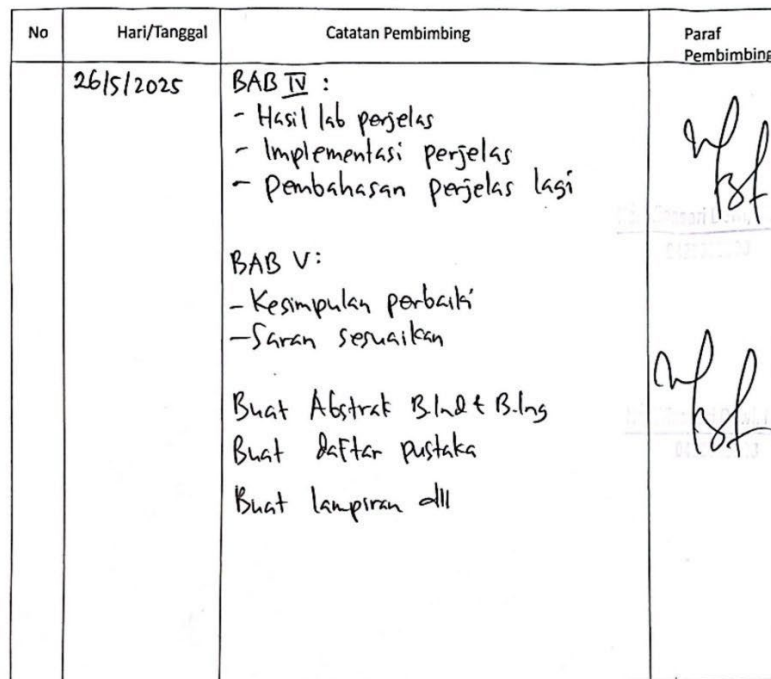 No Hari/Tanggal Catatan Pembimbing Paraf
Pembimbing
26/5/2025 BAB IV :
- Hasil lab perjelas
- Implementasi perjelas
- Pembahasan perjelas lagi
BAB V:
- Kesimpulan perbaiki
- Saran sesuaikan
Buat Abstrak B.Ind & B.Ing
Buat daftar pustaka
Buat lampiran dll